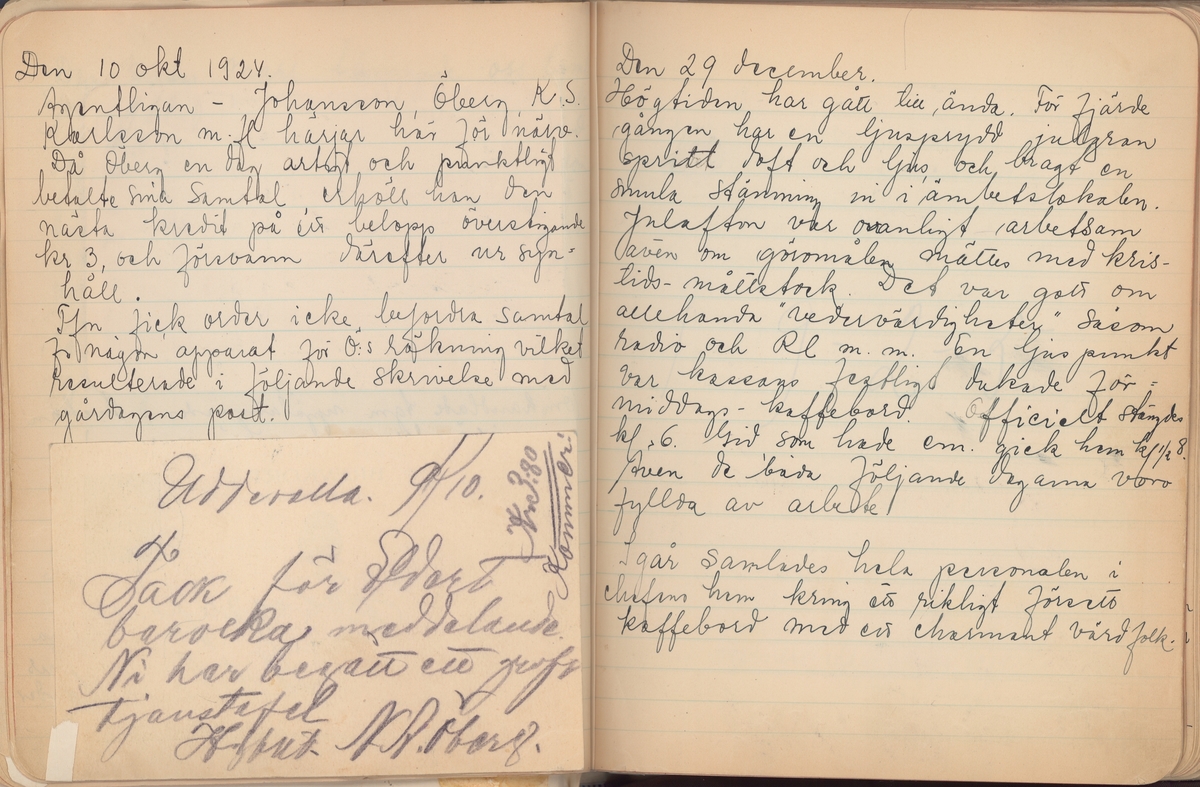 Den 10 okt 1924.
Agentligan - Johansson, Öberg K.S.
Karlsson m.fl härjar här för närv.
Då Öberg en dag artigt och punktligt
betalte sina samtal erhöll han den
nästa kredit på ett belopp överstigande
kr 3, och försvann därefter ur syn-
håll.
Tfn fick order icke befordra samtal
fr någon apparat för Ö:s räkning vilket
resulterade i följande skrivelse med
gårdagens post.
Uddevalla. 9/10.
Kr 3:80
Kommer!
Tack för Edert
barocka meddelande.
Ni har begått ett groft
tjänstefel
N. Öberg.
Den 29 december.
Högtiden har gått till ända. För fjärde
gången har en ljusprydd julgran
spritt doft och ljus och bragt en
smula stämning in i ämbetslokalen.
Julafton var ovanligt arbetsam
även om göromålen mättes med kris-
tids-måttstock. Det var gott om
allehanda "vedervärdigheter" såsom
radio och Rl m.m. En ljuspunkt
var kassans festligt dukade för-
middags-kaffebord. Officielt stängdes
kl. 6. Gid som hade em. gick hem kl 1/2 8.
Även de båda följande dagarna voro
fyllda av arbete
Igår samlades hela personalen i
chefens hem kring ett rikligt försett
kaffebord med ett charmant värdfolk.